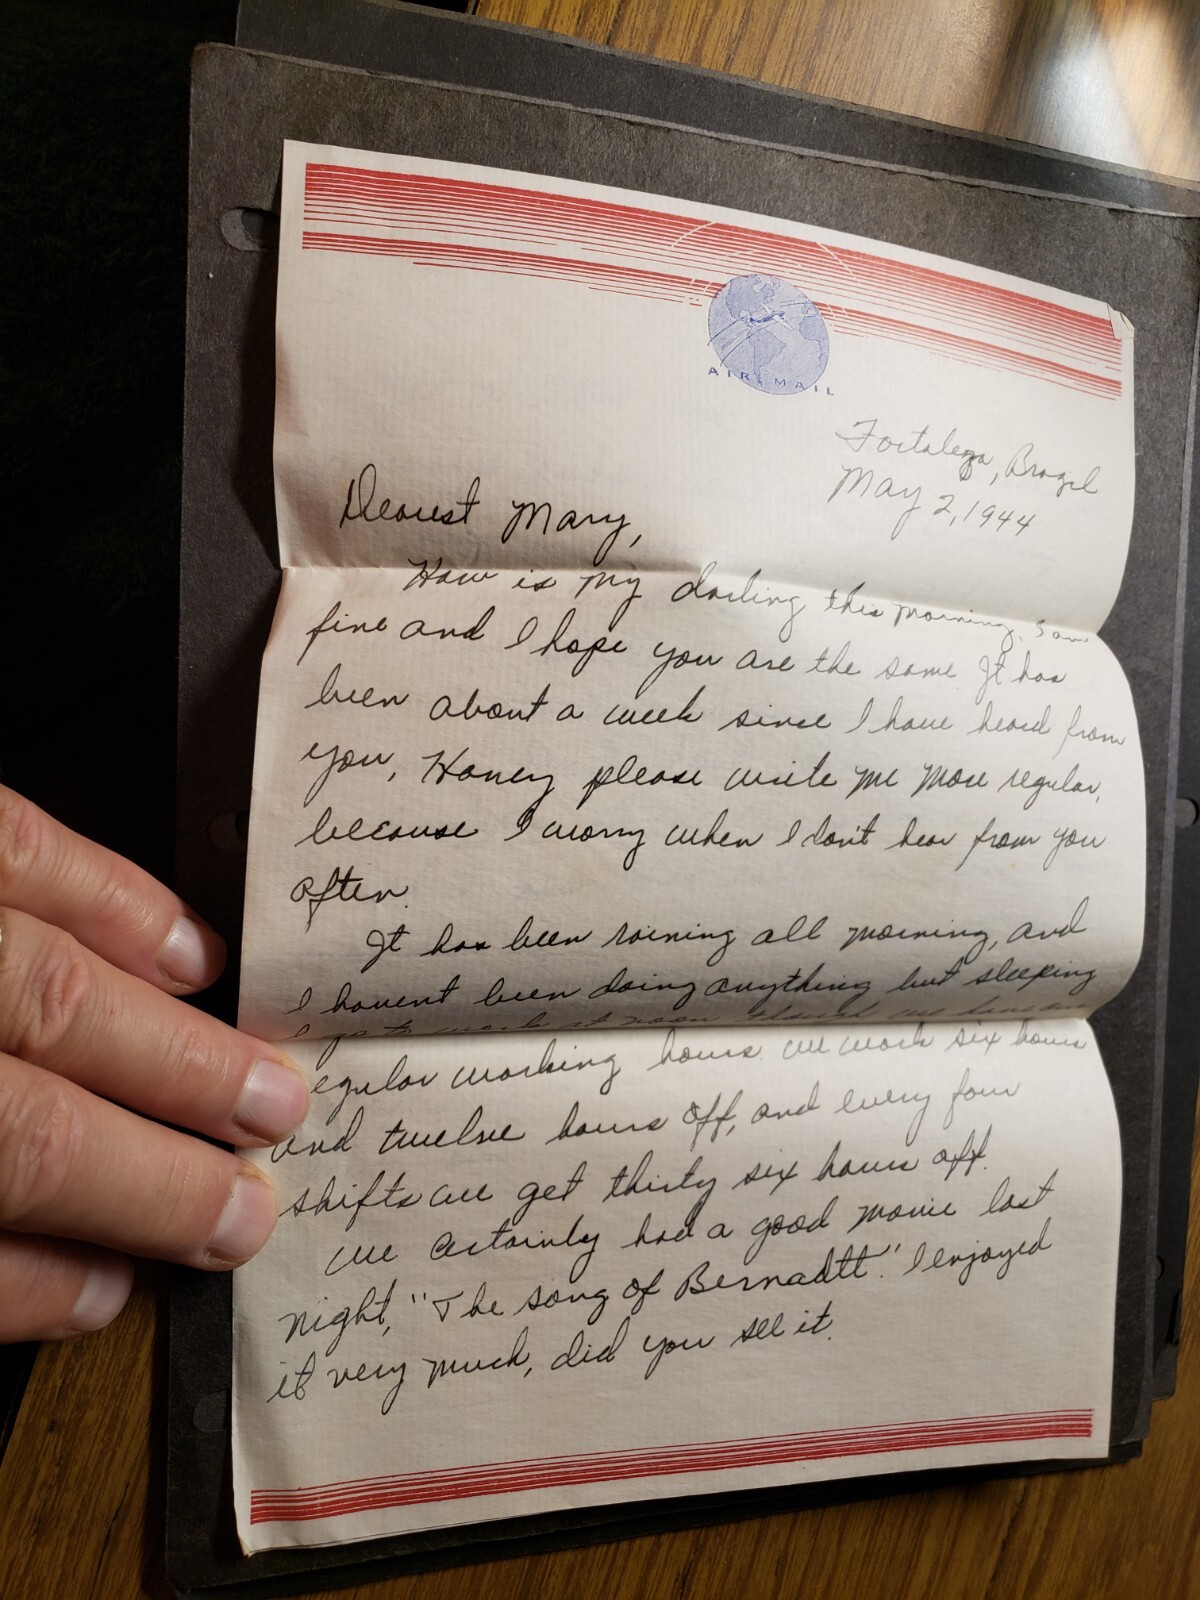 AIR MAIL
Fortaleza, Brazil
May 2, 1944
Dearest Mary,
How is my darling this morning, I am
fine and I hope you are the same. It has
been about a week since I have heard from
you, Honey please write me more regular,
because I worry when I don't hear from you
often.
It has been raining all morning, and
I havent been doing anything but sleeping
I go to work at noon
egular working hours. we work six hours
and twelve hours off, and every four
shifts we get thirty six hours off.
we certainly had a good movie last
night, "The song of Bernadett." I enjoyed
it very much, did you see it.